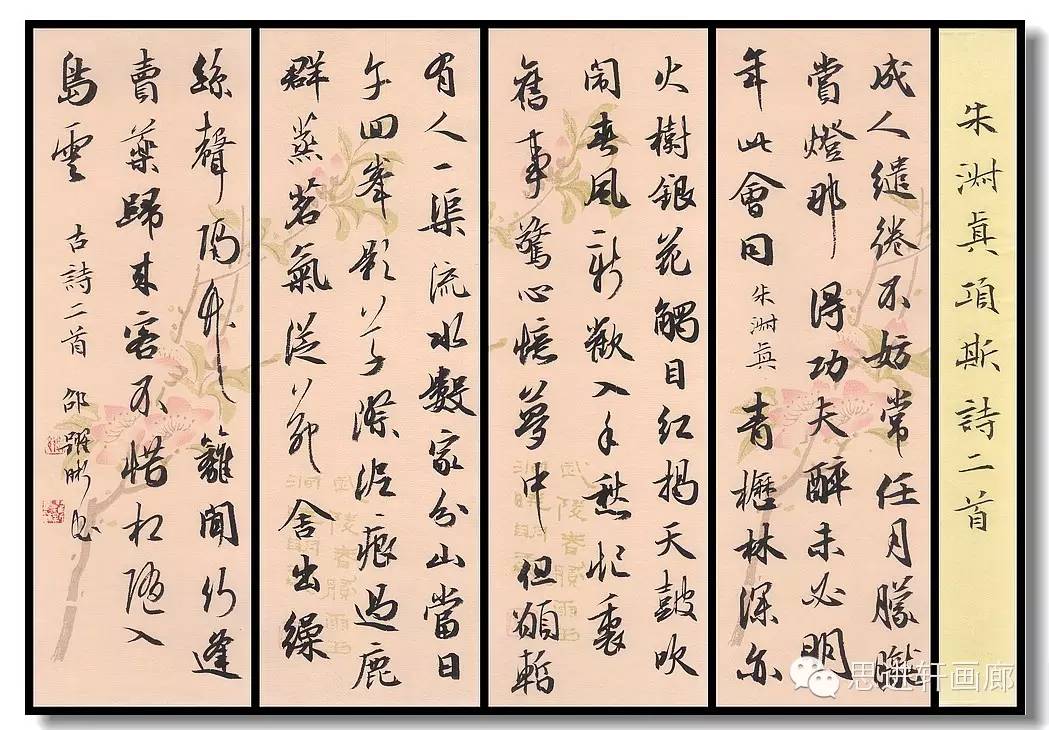 朱淑真項斯詩二首
成人繾綣不妨常任月朦朧
賞燈那得功夫醉未必明
年此會同 朱淑真 青櫪林深亦
火樹銀花觸目紅揭天鼓吹
鬧春風新歡入手愁忙裏
舊事驚心憶夢中但願暫
有人一渠流水數家分山當日
午回峯影草滌泥痕過鹿
群蒸茗氣從茅舍出繰
絲聲隔竹籬聞行逢
賣藥歸來客不惜相隨入
島雲 古詩二首 邵躍彬書
思进轩画廊